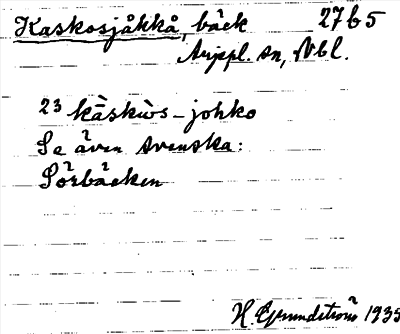 Kaskosjåkkå, bäck 27b5
Arjepl. sn, Nbl.
23 kàskùos-johko
Se även svenska:
Sörbäcken
H. Grundström 1935